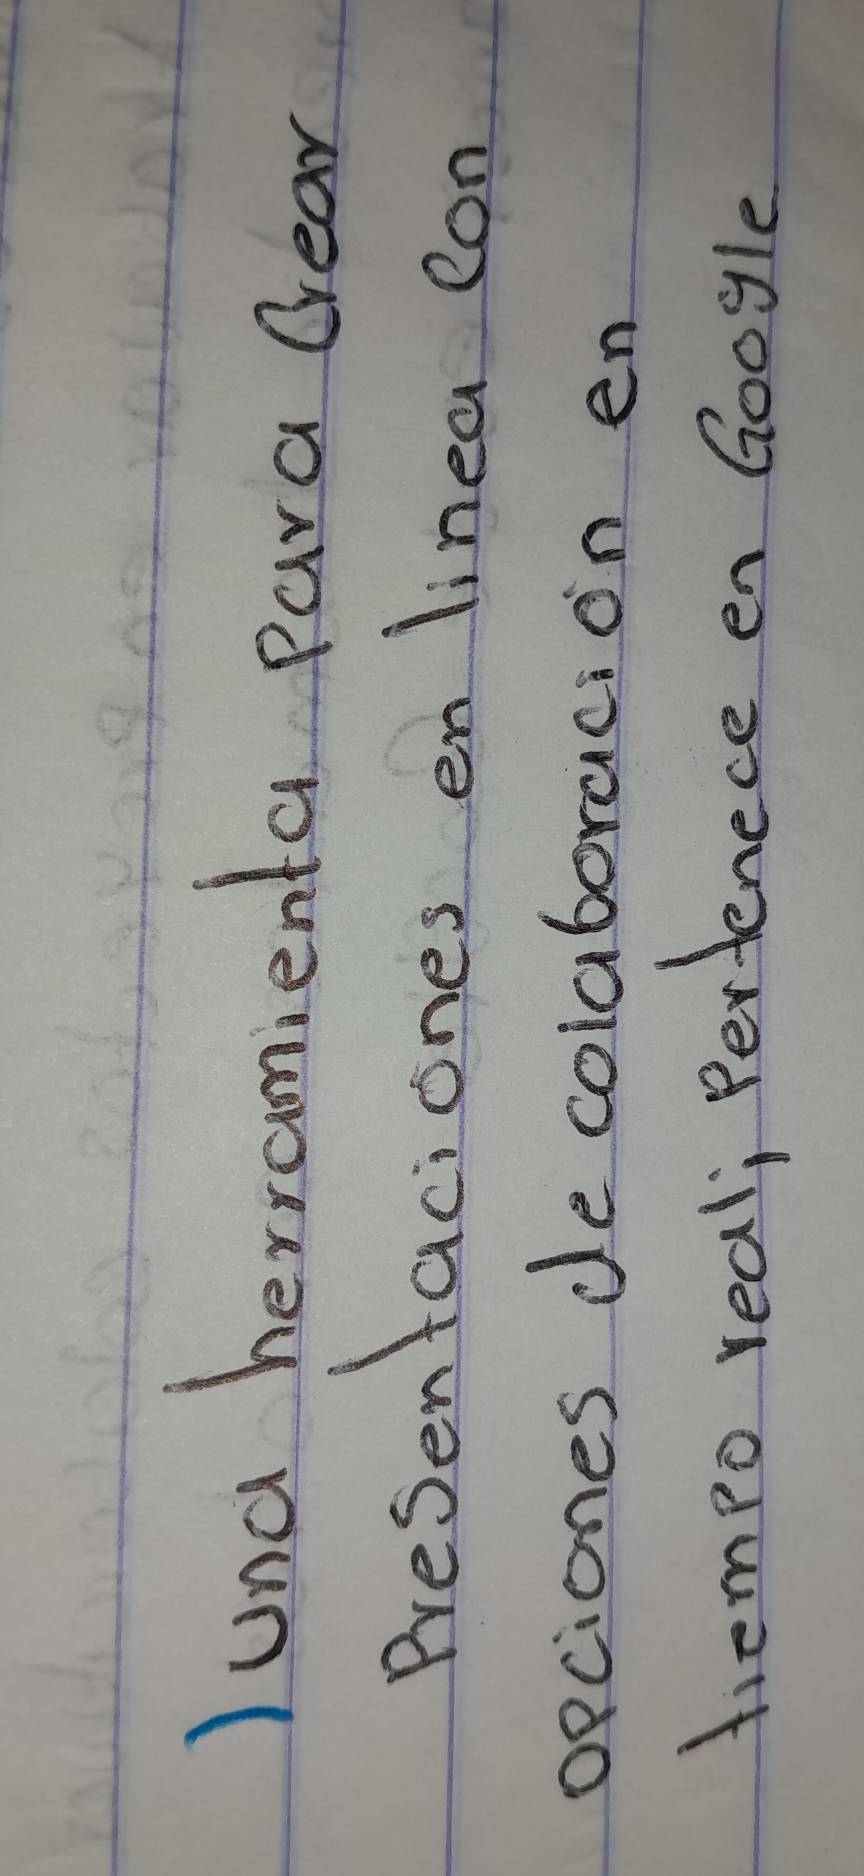 ) una herramienta Para Crear
Presentaciones en linea Con
opciones de colaboración en
tiempo real; Pertenece en Google